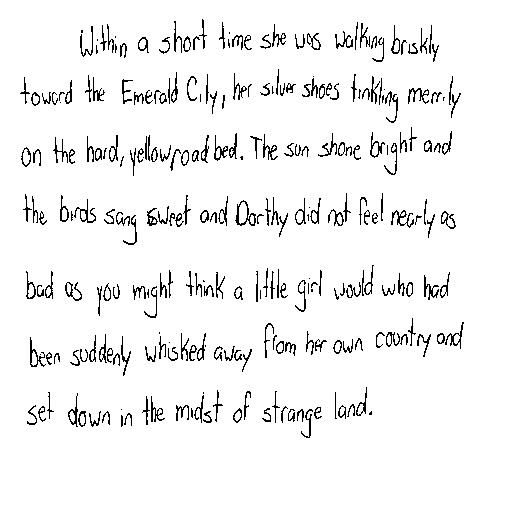 Within a short time she was walking briskly
toward the Emerald City, her silver shoes tinkling merrily
on the hard, yellow road bed. The sun shone bright and
the birds sang sweet and Dorthy did not feel nearly as
bad as you might think a little girl would who had
been suddenly whisked away from her own country and
set down in the midst of strange land.